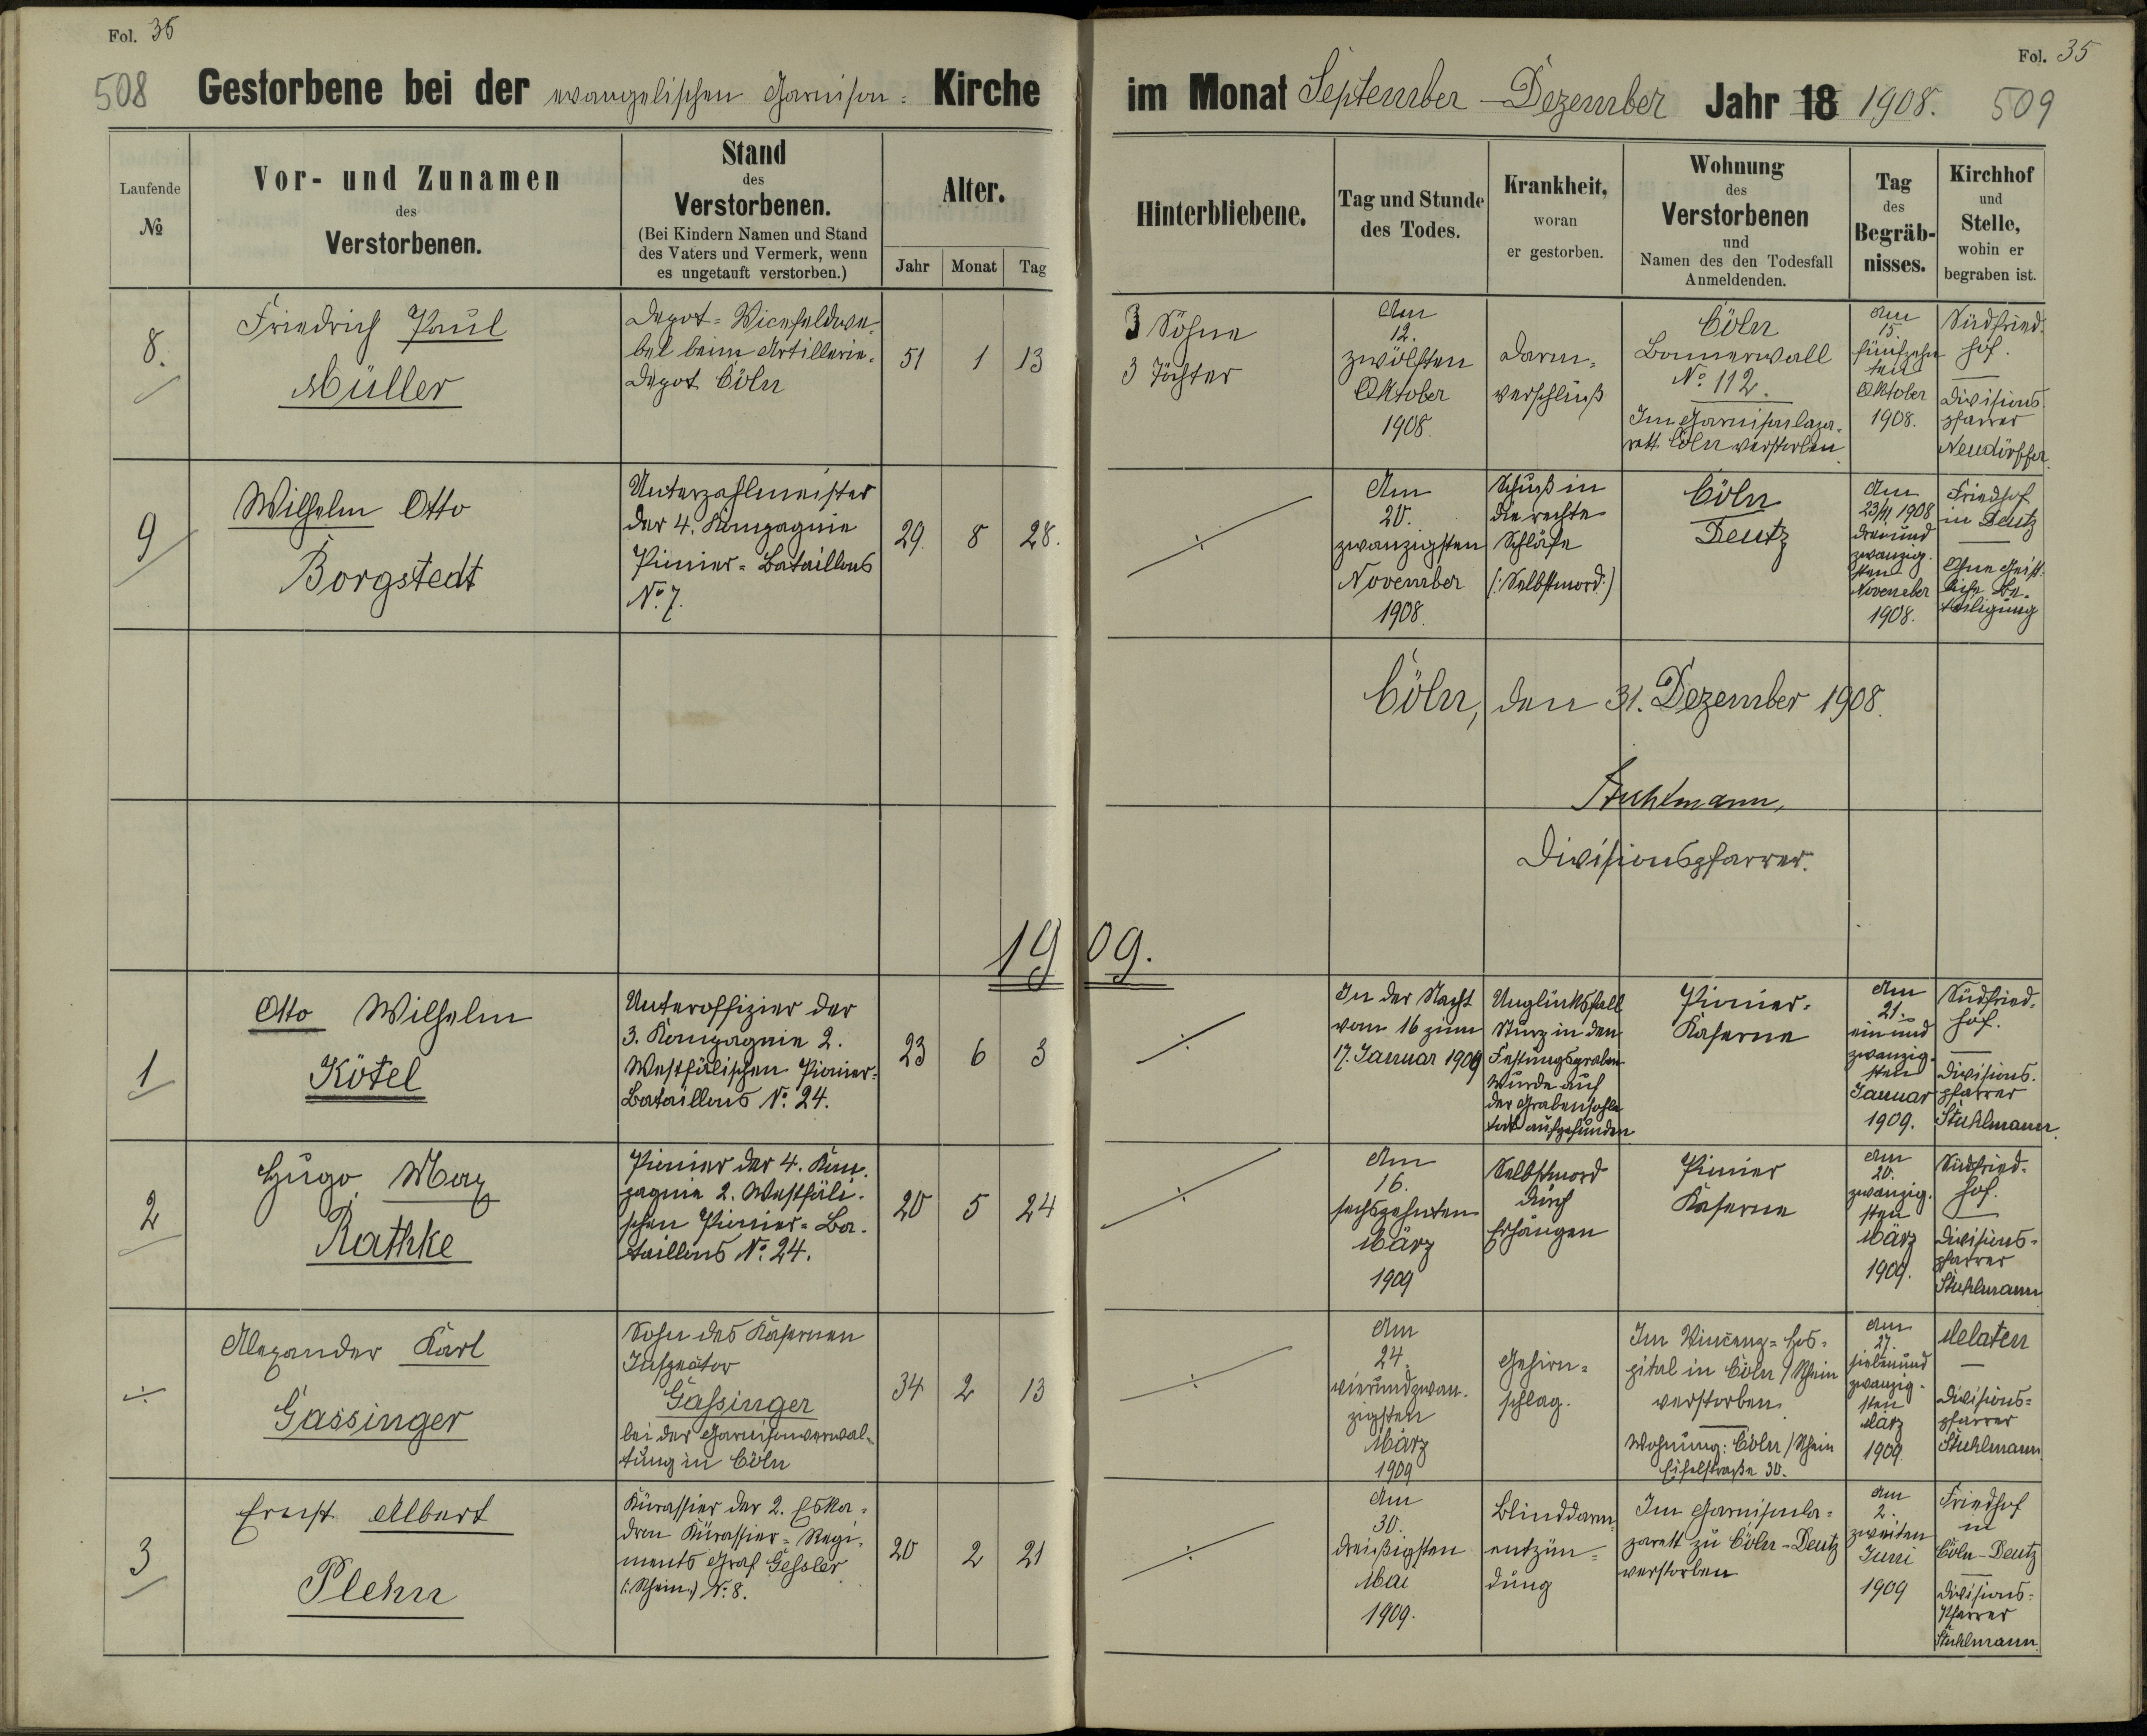 Fol. 35
508 Gestorbene bei der evangelischen Garnison- Kirche
Laufende
№
Vor- und Zunamen
des
Verstorbenen.
Stand
des
Verstorbenen.
(Bei Kindern Namen und Stand
des Vaters und Vermerk, wenn
es ungetauft verstorben.)
Alter.
Jahr Monat Tag
8.
Friedrich Paul
Müller
Depot-Vicefeldwe-
bel beim Artillerie-
Depot Cöln
51 1 13
9
Wilhelm Otto
Borgstedt
Unterzahlmeister
der 4. Kompagnie
Pionier-Bataillons
No 7.
29. 8 28.
1909.
1
Otto Wilhelm
Kötel
Unteroffizier der
3. Kompagnie 2.
Westfälischen Pionier-
Bataillons No. 24.
23 6 3
2
Hugo Max
Rathke
Pionier der 4. Kom-
pagnie 2. Westfäli-
schen Pionier-Ba-
taillons No. 24.
20 5 24
÷
Alexander Karl
Gassinger
Sohn des Kasernen
Inspektor
Gassinger
bei der Garnisonverwal-
tung in Cöln
34 2 13
3
Ernst Albert
Plehn
Kürassier der 2. Eska-
dron Kürassier-Regi-
ments Graf Gessler
(:Rhein:) No. 8.
20 2 21
Fol. 35
im Monat September - Dezember Jahr 18 1908. 509
Hinterbliebene.
Tag und Stunde
des Todes.
Krankheit,
woran
er gestorben.
Wohnung
des
Verstorbenen
und
Namen des den Todesfall
Anmeldenden.
Tag
des
Begräb-
nisses.
Kirchhof
und
Stelle,
wohin er
begraben ist.
3 Söhne
3 Töchter
Am
12.
zwölften
Oktober
1908.
Darm-
verschluß
Cöln
Bonnerwall
No 112.
Im Garnisonlaza-
rett Cöln verstorben
Am
15.
fünfzehn
ten
Oktober
1908.
Südfried-
hof.
Divisions
pfarrer
Neudörffer.
÷
Am
20.
zwanzigsten
November
1908.
Schuß in
die rechte
Schläfe
(:Selbstmord:)
Cöln
Deutz
Am
23/11 1908
dreiund
zwanzig-
sten
November
1908.
Friedhof
in Deutz
Ohne Geist-
liche Be-
teiligung
Cöln, den 31. Dezember 1908.
Stuhlmann,
Divisionspfarrer.
÷
In der Nacht
vom 16 zum
17. Januar 1909
Unglücksfall
Sturz in den
Festungsgraben
Wurde auf
der Grabensohle
tot aufgefunden
Pionier-
Kaserne
Am
21.
einund
zwanzig-
sten
Januar
1909.
Südfried-
hof.
Divisions-
pfarrer
Stuhlmann.
÷
Am
16.
sechszehnten
März
1909
Selbstmord
durch
Erhängen
Pionier
Kaserne
Am
20.
zwanzig-
sten
März
1909.
Südfried-
hof.
Divisions-
pfarrer
Stuhlmann
÷
Am
24.
vierundzwan-
zigsten
März
1909
Gehirn-
schlag.
Im Vincenz-Hos-
pital in Cöln/Rhein
verstorben.
Wohnung: Cöln/Rhein
Eifelstraße 30.
Am
27.
siebenund
zwanzig-
sten
März
1909.
Melaten
Divisions-
pfarrer
Stuhlmann
÷
Am
30.
dreißigsten
Mai
1909.
Blinddarm-
entzün-
dung
Im Garnisonla-
zarett zu Cöln-Deutz
verstorben
Am
2.
zweiten
Juni
1909
Friedhof
in
Cöln-Deutz
Divisions-
Pfarrer
Stuhlmann.